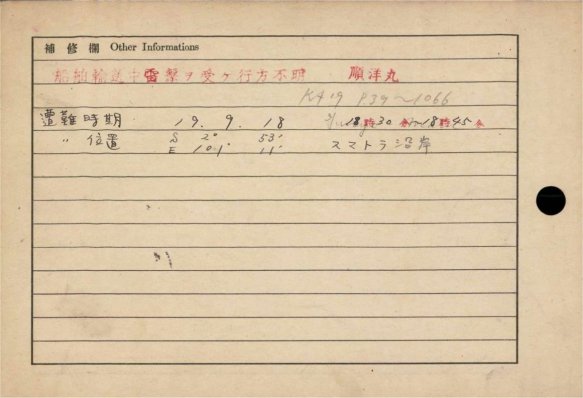 補修欄 Other Informations
船舶輸送中雷撃ヲ受ケ行方不明 順洋丸
K419 P39〜1066
遭難時期 19. 9. 18 18時30分 18時45分
〃 位置 S 2° 53′ スマトラ沿岸
E 101° 11′